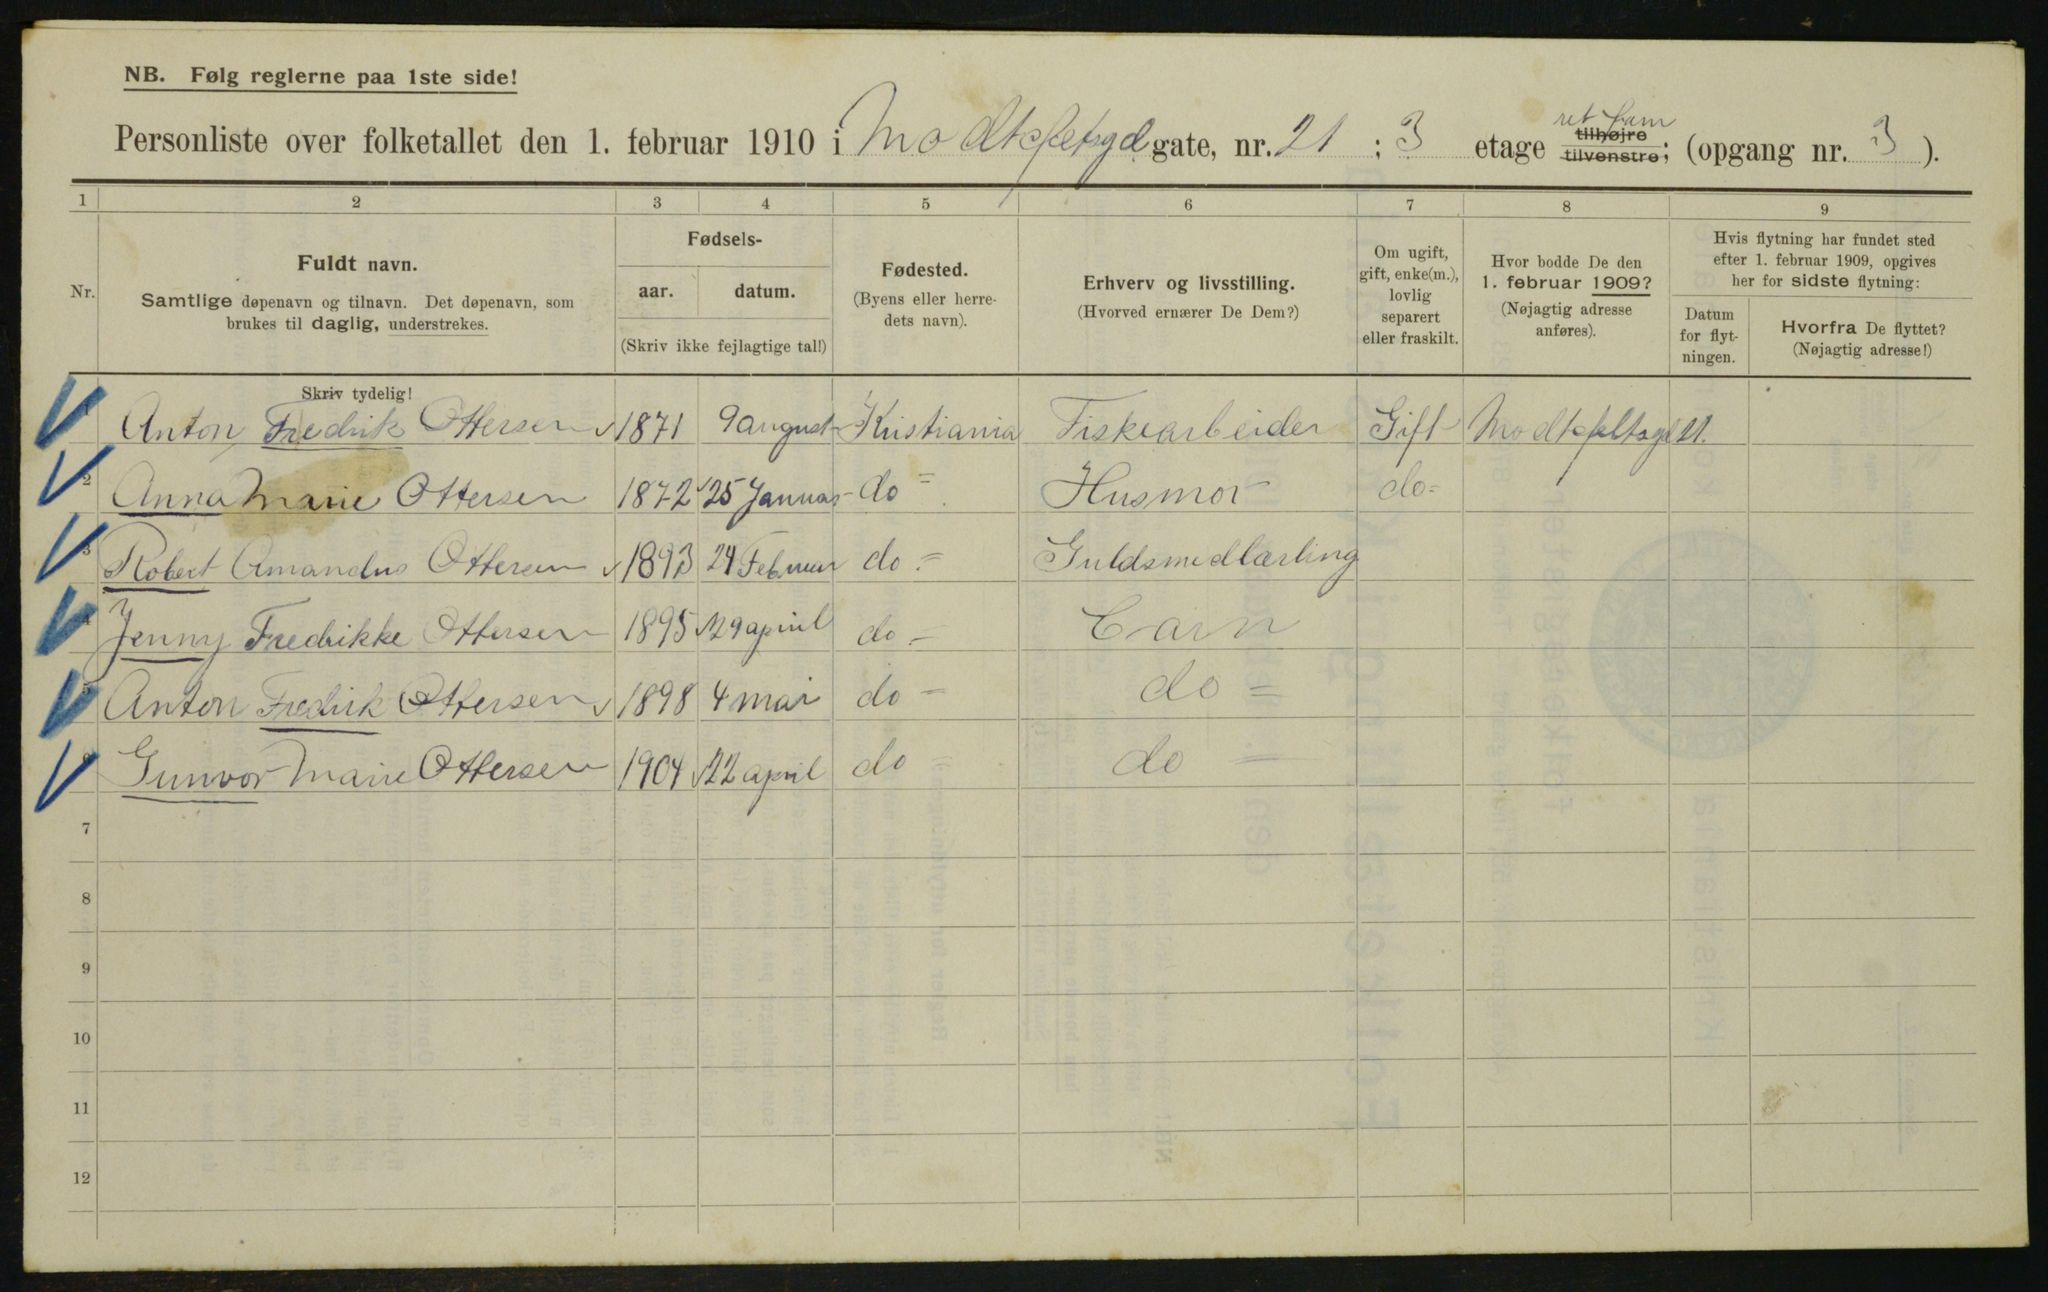 NB. Følg reglerne paa 1ste side!
ret fram
Personliste over folketallet den 1. februar 1910 i Modtfeltsgd gate, nr. 21 ; 3 etage tilhøjre tilvenstre; (opgang nr. 3 ).
1 2 3 4 5 6 7 8 9
Nr.
Fuldt navn.
Samtlige døpenavn og tilnavn. Det døpenavn, som
brukes til daglig, understrekes.
Fødsels-
aar. datum.
(Skriv ikke fejlagtige tal!)
Fødested.
(Byens eller herre-
dets navn).
Erhverv og livsstilling.
(Hvorved ernærer De Dem?)
Om ugift,
gift, enke(m.),
lovlig
separert
eller fraskilt.
Hvor bodde De den
1. februar 1909?
(Nøjagtig adresse
anføres).
Hvis flytning har fundet sted
efter 1. februar 1909, opgives
her for sidste flytning:
Datum
for flyt-
ningen.
Hvorfra De flyttet?
(Nøjagtig adresse!)
Skriv tydelig!
1 Anton Fredrik Ottersen 1871 9 august Kristiania Fiskearbeider Gift Modtfeltsgd 21.
2 Anna Marie Ottersen 1872 25 Januar do = Husmor do=
3 Robert Amandus Ottersen 1893 24 Februar do = Guldsmedlærling
4 Jenny Fredrikke Ottersen 1895 29 april do = Barn
5 Anton Fredrik Ottersen 1898 4 mai do = do =
6 Gunvor Marie Ottersen 1904 22 april do = do =
7
8
9
10
11
12